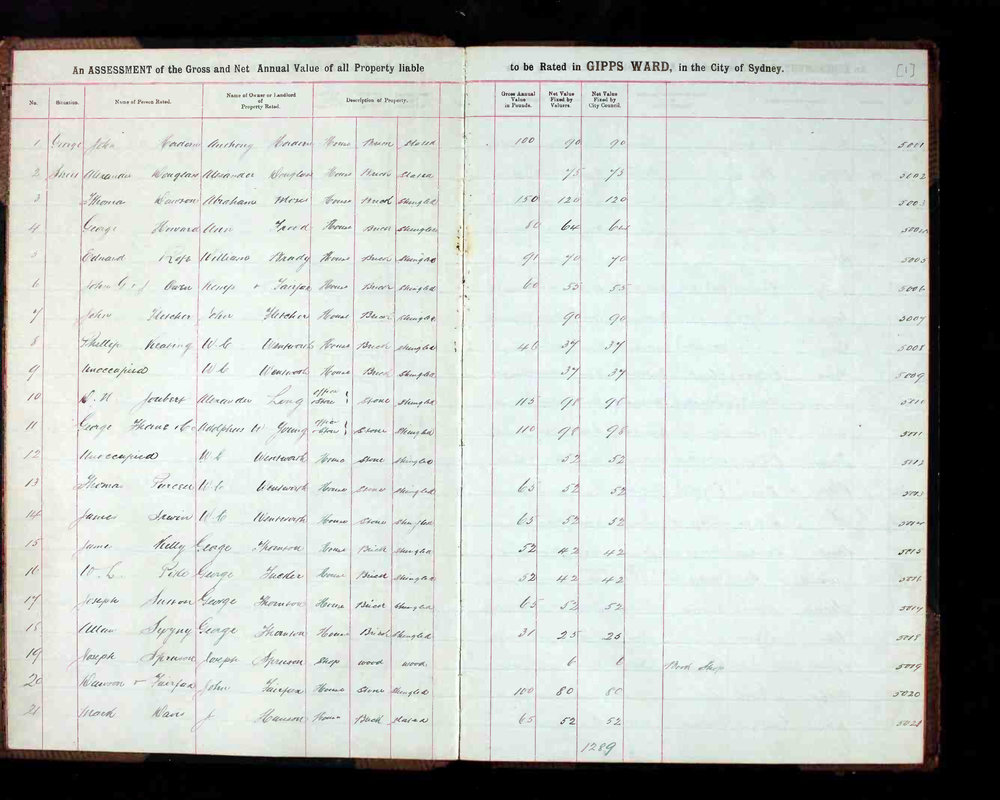 An ASSESSMENT of the Gross and Net Annual Value of all Property liable to be Rated in GIPPS WARD, in the City of Sydney. [1]
No. Situation. Name of Person Rated. Name of Owner or Landlord of Property Rated. Description of Property. Gross Annual Value in Pounds. Net Value Fixed by Valuers. Net Value Fixed by City Council.
1 George John Anthony Hordern House Brick Slated 100 90 90 5001
2 Street Alexander Douglass Alexander Douglass House Brick Slated 75 75 5002
3 Thomas Dawson Abraham Moses House Brick Shingled 150 120 120 5003
4 George Howard Ann House Brick Shingled 80 64 64 5004
5 Edward William Brady House Brick Shingled 91 70 70 5005
6 John G Owen Kemp + Fairfax House Brick Shingled 60 55 55 5006
7 John Fletcher John Fletcher House Brick Shingled 90 90 5007
8 Phillip W C Wentworth House Brick Shingled 46 37 37 5008
9 Unoccupied W C Wentworth House Brick Shingled 37 37 5009
10 D. N Joubert Alexander Long Office + Store Stone Shingled 115 98 98 5010
11 George Adolphus W Young Office + Store Stone Shingled 110 98 98 5011
12 Unoccupied W C Wentworth House Stone Shingled 52 52 5012
13 Thomas W C Wentworth House Stone Shingled 65 52 52 5013
14 James Irwin W C Wentworth House Stone Shingled 65 52 52 5014
15 Jame Kelly George Thornton House Brick Shingled 52 42 42 5015
16 W. L. George Tucker House Brick Shingled 52 42 42 5016
17 Joseph Sutton George Thornton House Brick Shingled 65 52 52 5017
18 Allan George Thornton House Brick Shingled 31 25 25 5018
19 Joseph Spruson Joseph Spruson Shop wood wood 6 6 Book Shop 5019
20 Hanson + Fairfax John Fairfax House Stone Shingled 100 80 80 5020
21 Mark Davis J Hanson House Brick Slated 65 52 52 5021
1289